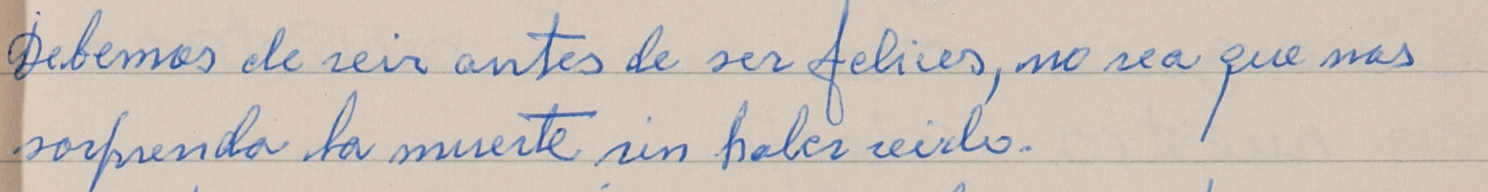 Debemos de reir antes de ser felices, no sea que nos
sorprenda la muerte sin haber reido.